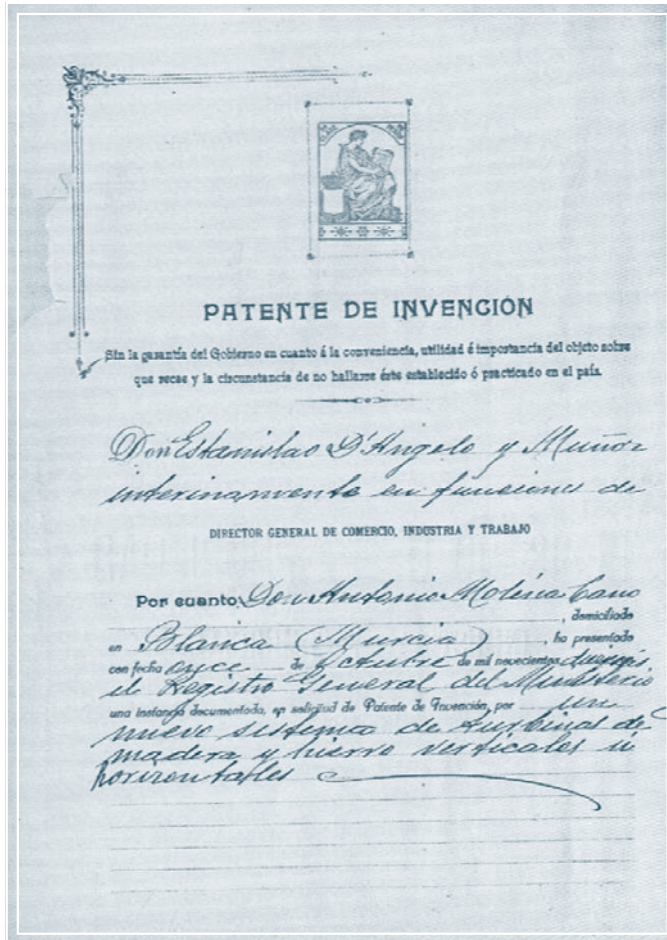 PATENTE DE INVENCIÓN
Sin la garantía del Gobierno en cuanto á la conveniencia, utilidad é importancia del objeto sobre
que recae y la circunstancia de no hallarse éste establecido ó practicado en el país.
Don Estanislao D'Angelo y Muñoz
interinamente en funciones de
DIRECTOR GENERAL DE COMERCIO, INDUSTRIA Y TRABAJO
Por cuanto Don Antonio Molina Cano
, domiciliado
en Blanca (Murcia) , ha presentado
con fecha once de Octubre de mil novecientos
el Registro General del Ministerio
una instancia documentada, en solicitud de Patente de Invención, por un
nuevo sistema de turbinas de
madera y hierro verticales ú
horizontales